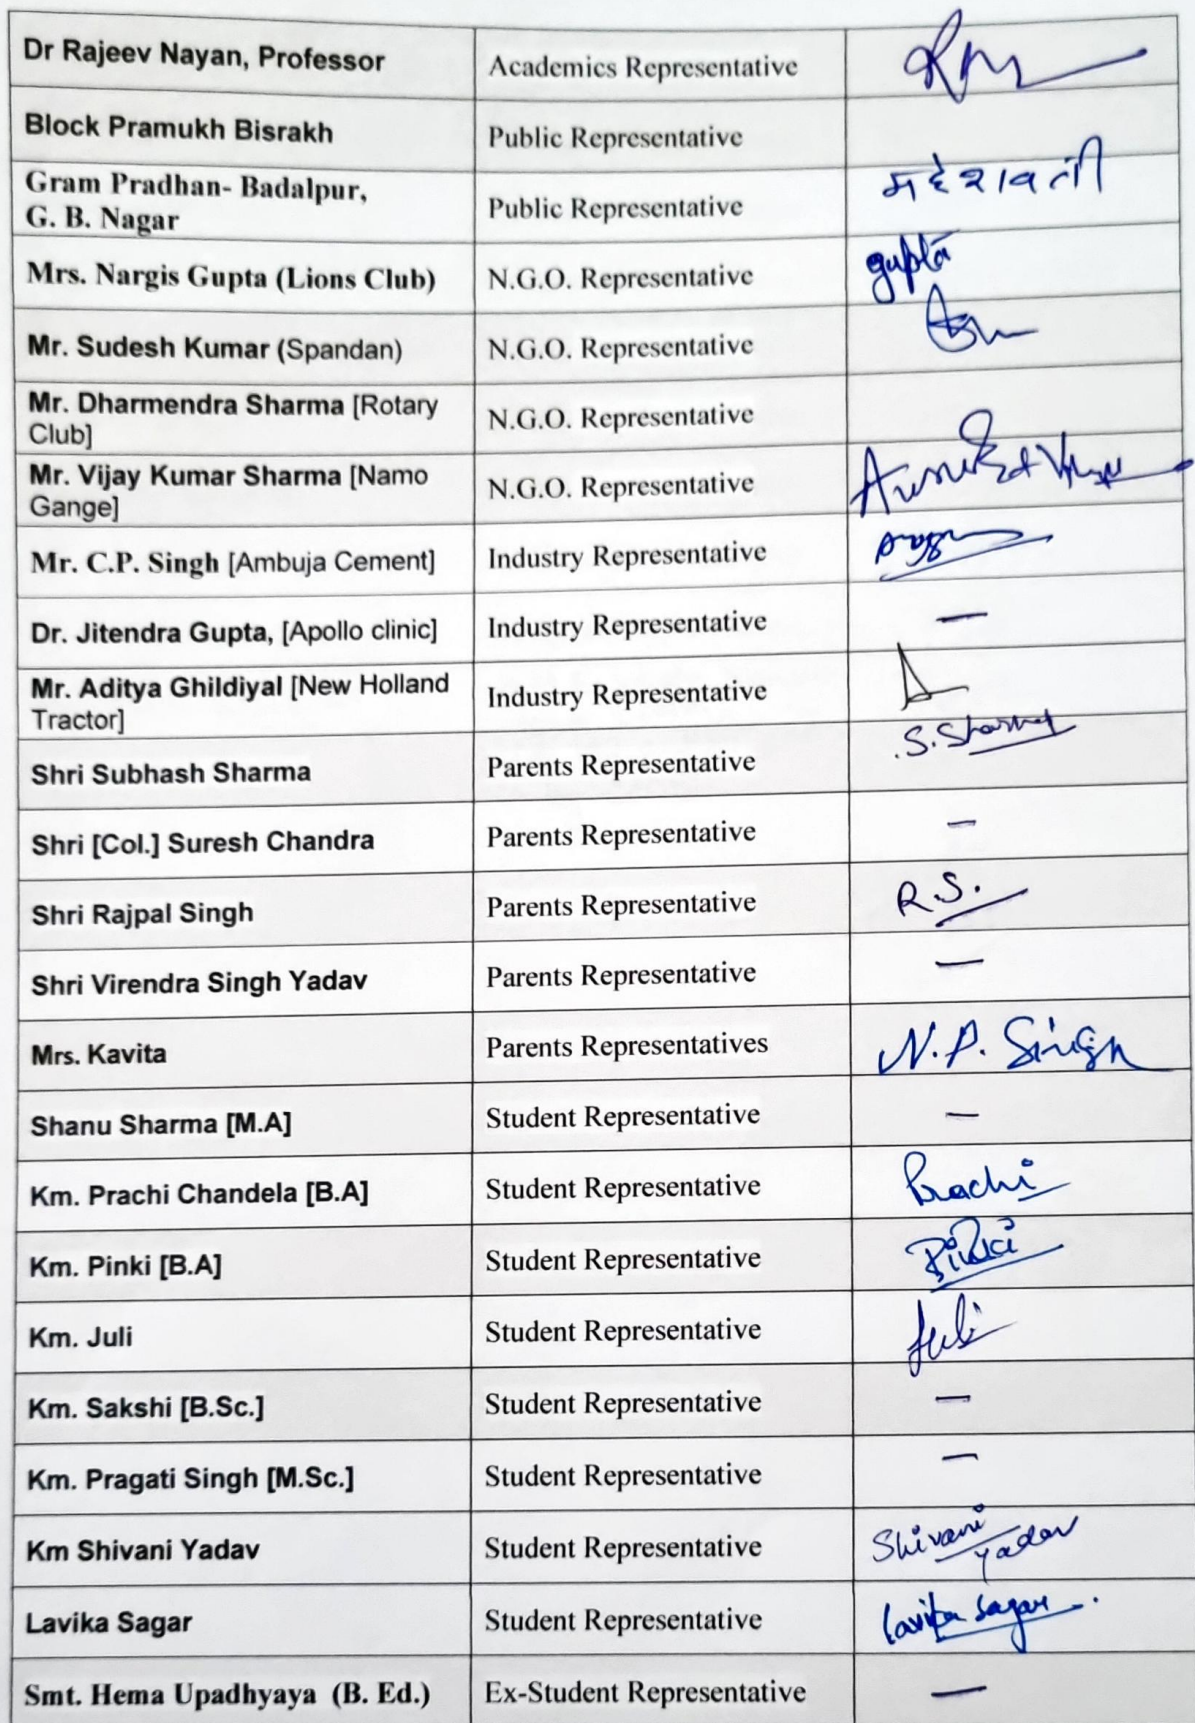 Dr Rajeev Nayan, Professor Academics Representative
Block Pramukh Bisrakh Public Representative
Gram Pradhan- Badalpur,
G. B. Nagar Public Representative
Mrs. Nargis Gupta (Lions Club) N.G.O. Representative gupta
Mr. Sudesh Kumar (Spandan) N.G.O. Representative
Mr. Dharmendra Sharma [Rotary
Club] N.G.O. Representative
Mr. Vijay Kumar Sharma [Namo
Gange] N.G.O. Representative
Mr. C.P. Singh [Ambuja Cement] Industry Representative
Dr. Jitendra Gupta, [Apollo clinic] Industry Representative —
Mr. Aditya Ghildiyal [New Holland
Tractor] Industry Representative
Shri Subhash Sharma Parents Representative S. Sharma
Shri [Col.] Suresh Chandra Parents Representative —
Shri Rajpal Singh Parents Representative R.S.
Shri Virendra Singh Yadav Parents Representative —
Mrs. Kavita Parents Representatives N.P. Singh
Shanu Sharma [M.A] Student Representative —
Km. Prachi Chandela [B.A] Student Representative Prachi
Km. Pinki [B.A] Student Representative Pinki
Km. Juli Student Representative Juli
Km. Sakshi [B.Sc.] Student Representative —
Km. Pragati Singh [M.Sc.] Student Representative —
Km Shivani Yadav Student Representative Shivani
Yadav
Lavika Sagar Student Representative lavika sagar.
Smt. Hema Upadhyaya (B. Ed.) Ex-Student Representative —